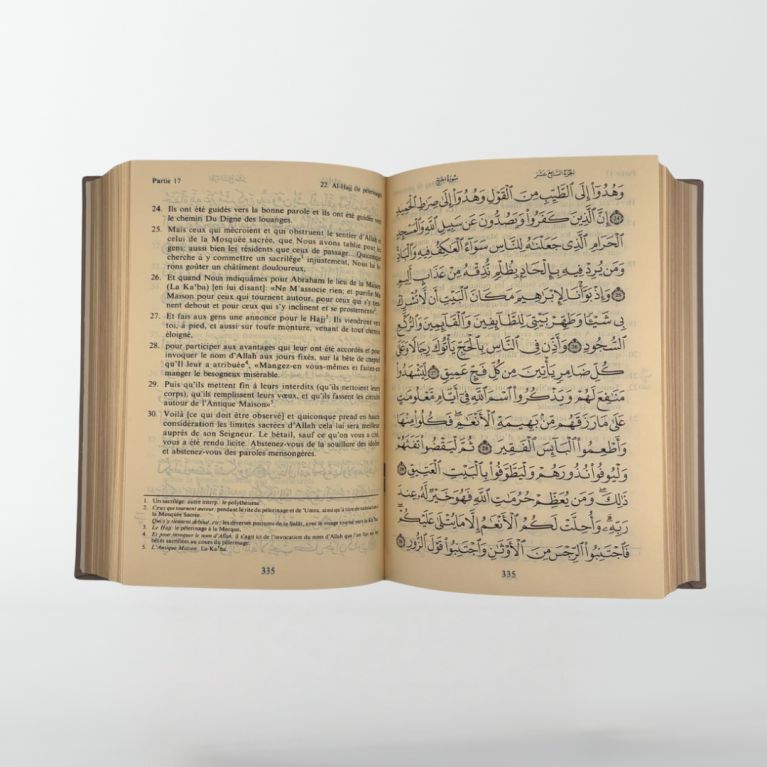 Partie 17
22. Al-Hajj (le pèlerinage)
24. Ils ont été guidés vers la bonne parole et ils ont été guidés vers
le chemin Du Digne des louanges.
25. Mais ceux qui mécroient et qui obstruent le sentier d'Allah et
celui de la Mosquée sacrée, que Nous avons établie pour les
gens: aussi bien les résidents que ceux de passage... Quiconque
cherche à y commettre un sacrilège¹ injustement, Nous lui fe-
rons goûter un châtiment douloureux.
26. Et quand Nous indiquâmes pour Abraham le lieu de la Maison
(La Ka'ba) [en lui disant]: «Ne M'associe rien; et purifie Ma
Maison pour ceux qui tournent autour, pour ceux qui s'y tien-
nent debout et pour ceux qui s'y inclinent et se prosternent²».
27. Et fais aux gens une annonce pour le Hajj³. Ils viendront vers
toi, à pied, et aussi sur toute monture, venant de tout chemin
éloigné.
28. pour participer aux avantages qui leur ont été accordés et pour
invoquer le nom d'Allah aux jours fixés, sur la bête de cheptel
qu'Il leur a attribuée⁴, «Mangez-en vous-mêmes et faites-en
manger le besogneux misérable.
29. Puis qu'ils mettent fin à leurs interdits (qu'ils nettoient leurs
corps), qu'ils remplissent leurs vœux, et qu'ils fassent les circuits
autour de l'Antique Maison»⁵.
30. Voilà [ce qui doit être observé] et quiconque prend en haute
considération les limites sacrées d'Allah cela lui sera meilleur
auprès de son Seigneur. Le bétail, sauf ce qu'on vous a cité,
vous a été rendu licite. Abstenez-vous de la souillure des idoles
et abstenez-vous des paroles mensongères.
1. Un sacrilège: autre interp.: le polythéisme.
2. Ceux qui tournent autour: pendant le rite du pèlerinage et de 'Umra, ainsi qu'à
la Mosquée Sacrée.
Qui s'y tiennent debout, etc: les diverses postures de la Ṣalāt, avec le visage tourné vers la Ka'ba.
3. Le Hajj: le pèlerinage à la Mecque.
4. Et pour invoquer le nom d'Allah: il s'agit ici de l'invocation du nom d'Allah que l'on fait sur les
bêtes sacrifiées au cours du pèlerinage.
5. L'Antique Maison: La Ka'ba.
335
سورة الحج
الجزء السابع عشر
وَهُدُوٓا۟ إِلَى ٱلطَّيِّبِ مِنَ ٱلْقَوْلِ وَهُدُوٓا۟ إِلَىٰ صِرَٰطِ ٱلْحَمِيدِ
﴿٢٤﴾ إِنَّ ٱلَّذِينَ كَفَرُوا۟ وَيَصُدُّونَ عَن سَبِيلِ ٱللَّهِ وَٱلْمَسْجِدِ
ٱلْحَرَامِ ٱلَّذِى جَعَلْنَٰهُ لِلنَّاسِ سَوَآءً ٱلْعَٰكِفُ فِيهِ وَٱلْبَادِ
وَمَن يُرِدْ فِيهِ بِإِلْحَادٍۭ بِظُلْمٍ نُّذِقْهُ مِنْ عَذَابٍ أَلِيمٍ
﴿٢٥﴾ وَإِذْ بَوَّأْنَا لِإِبْرَٰهِيمَ مَكَانَ ٱلْبَيْتِ أَن لَّا تُشْرِكْ
بِى شَيْـًٔا وَطَهِّرْ بَيْتِىَ لِلطَّآئِفِينَ وَٱلْقَآئِمِينَ وَٱلرُّكَّعِ
ٱلسُّجُودِ ﴿٢٦﴾ وَأَذِّن فِى ٱلنَّاسِ بِٱلْحَجِّ يَأْتُوكَ رِجَالًا وَعَلَىٰ
كُلِّ ضَامِرٍ يَأْتِينَ مِن كُلِّ فَجٍّ عَمِيقٍ ﴿٢٧﴾ لِّيَشْهَدُوا۟
مَنَٰفِعَ لَهُمْ وَيَذْكُرُوا۟ ٱسْمَ ٱللَّهِ فِىٓ أَيَّامٍ مَّعْلُومَٰتٍ
عَلَىٰ مَا رَزَقَهُم مِّنۢ بَهِيمَةِ ٱلْأَنْعَٰمِ فَكُلُوا۟ مِنْهَا
وَأَطْعِمُوا۟ ٱلْبَآئِسَ ٱلْفَقِيرَ ﴿٢٨﴾ ثُمَّ لْيَقْضُوا۟ تَفَثَهُمْ
وَلْيُوفُوا۟ نُذُورَهُمْ وَلْيَطَّوَّفُوا۟ بِٱلْبَيْتِ ٱلْعَتِيقِ ﴿٢٩﴾
ذَٰلِكَ وَمَن يُعَظِّمْ حُرُمَٰتِ ٱللَّهِ فَهُوَ خَيْرٌ لَّهُۥ عِندَ
رَبِّهِۦ وَأُحِلَّتْ لَكُمُ ٱلْأَنْعَٰمُ إِلَّا مَا يُتْلَىٰ عَلَيْكُمْ
فَٱجْتَنِبُوا۟ ٱلرِّجْسَ مِنَ ٱلْأَوْثَٰنِ وَٱجْتَنِبُوا۟ قَوْلَ ٱلزُّورِ ﴿٣٠﴾
335